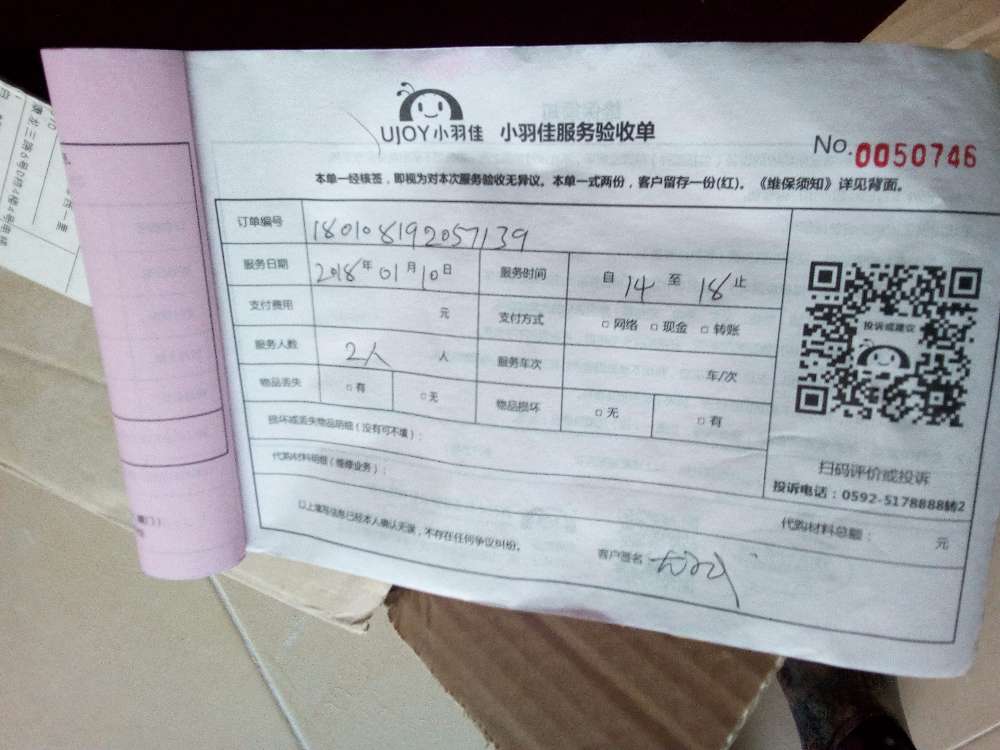 UJOY小羽佳 小羽佳服务验收单
No.0050746
本单一经核签，即视为对本次服务验收无异议。本单一式两份，客户留存一份(红)。《维保须知》详见背面。
订单编号 180108192057139
服务日期 2018年01月10日 服务时间 自 14 至 18 止
支付费用 元 支付方式 □网络 □现金 □转账
服务人数 2人 人 服务车次 车/次
物品丢失 □有 □无 物品损坏 □无 □有
损坏或丢失物品明细（没有可不填）：
代购材料明细（维修业务）：
投诉或建议
扫码评价或投诉
投诉电话：0592-5178888转2
代购材料总额： 元
以上填写信息已经本人确认无误，不存在任何争议纠纷。
客户签名